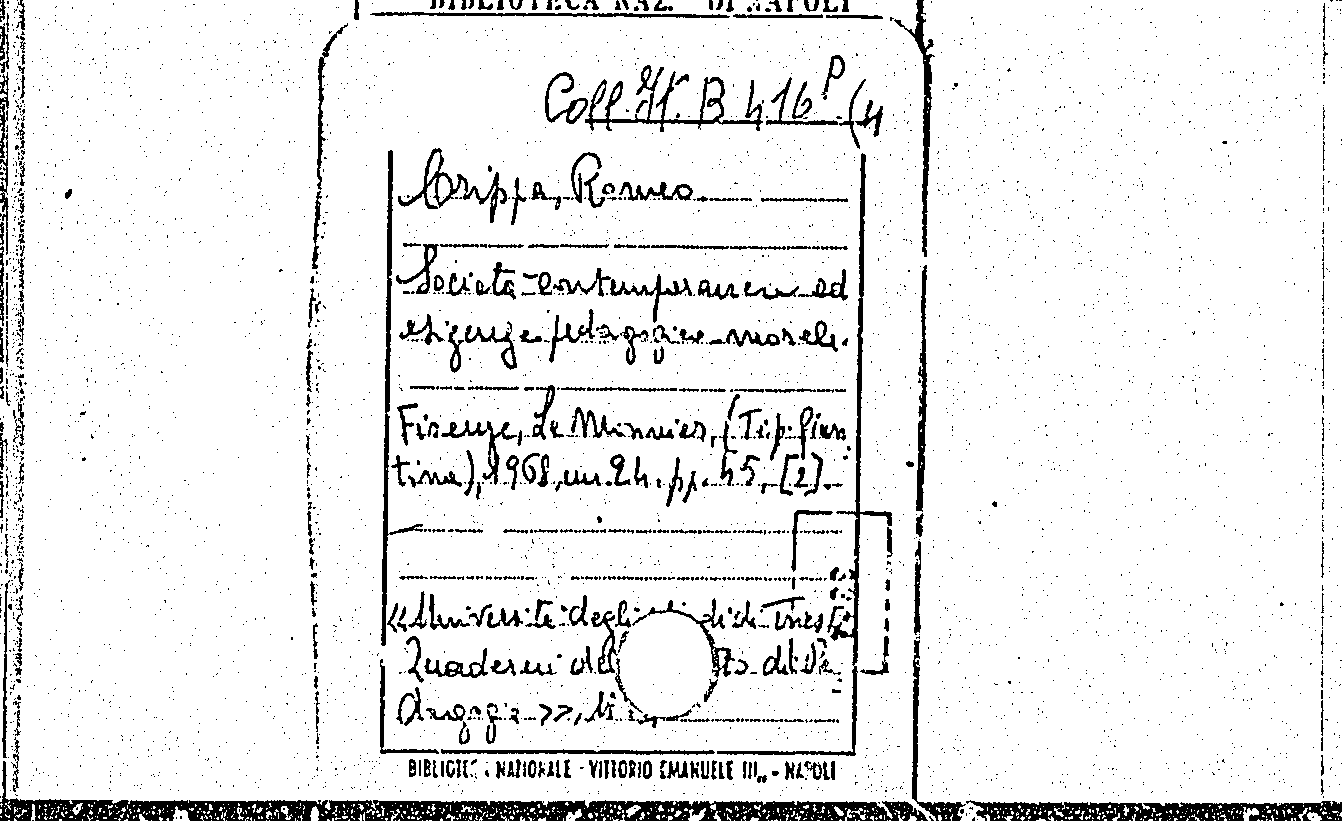 BIBLIOTECA NAZ. DI NAPOLI
Coll. It. B 416 P (4
Crippa, Romeo.
Società contemporanea ed
esigenze pedagogico-morali.
Firenze, Le Monnier, (Tip. Giun
tina), 1968, in 24. pp. 45, [2].
«Università degli di di Trieste
Quaderni del to di Pe
dagogia >>, N
BIBLIOTECA NAZIONALE - VITTORIO EMANUELE III,, - NAPOLI